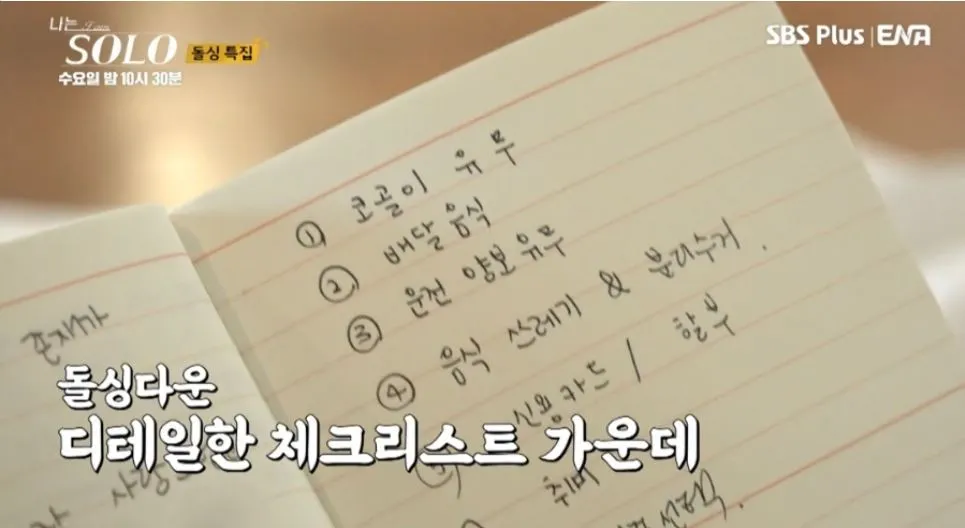 나는 I am
SOLO 돌싱 특집
수요일 밤 10시 30분
SBS Plus | ENA
① 코골이 유무
② 배달 음식
③ 운전 양보 유무
④ 음식 쓰레기 & 분리수거.
신용카드 / 할부
취미
혼자가
사랑
돌싱다운
디테일한 체크리스트 가운데